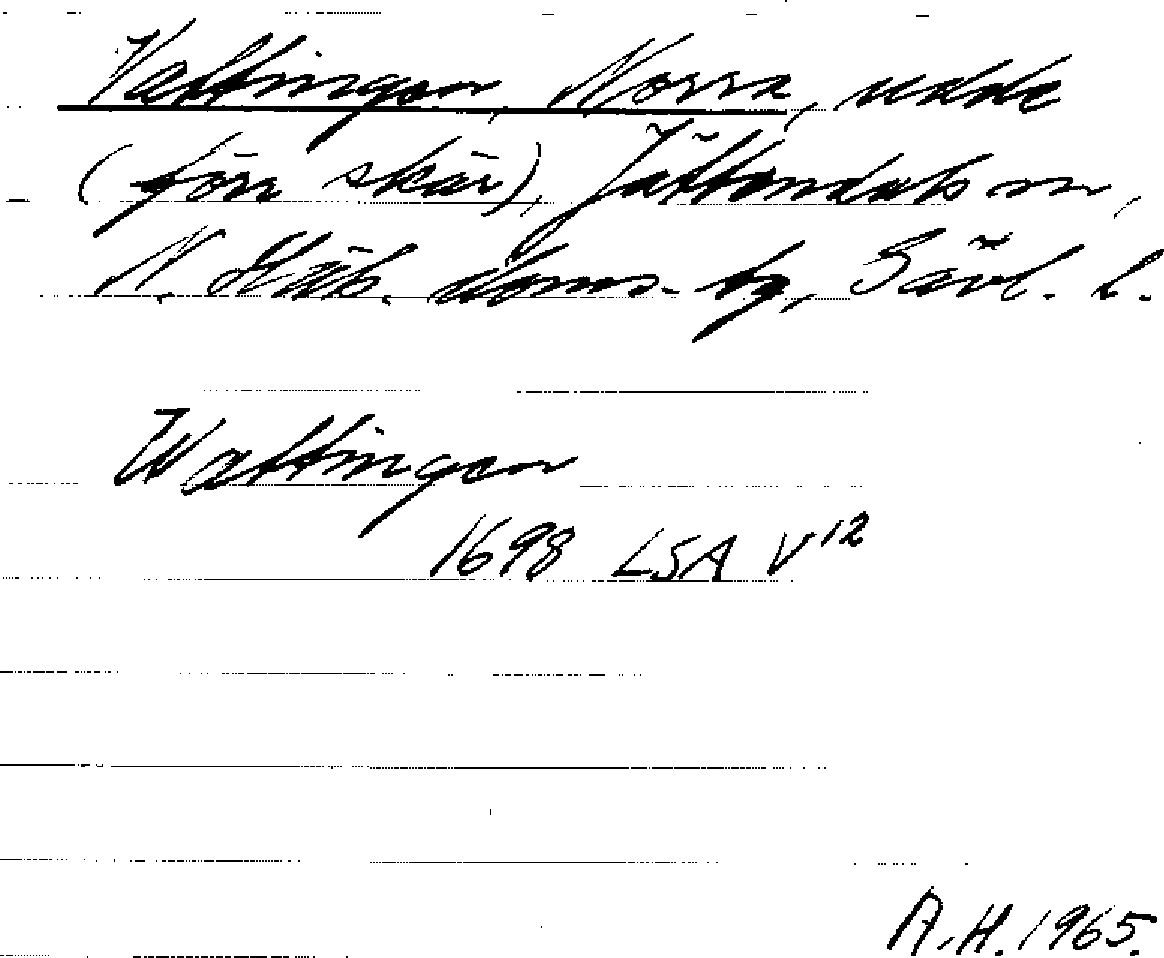 Vattingen, Norra, udde
(förr skär), Jättendals sn,
N. Häls. doms.-by, Gävl. l.
Wattingen
1698 LSA V12
A.H. 1965.